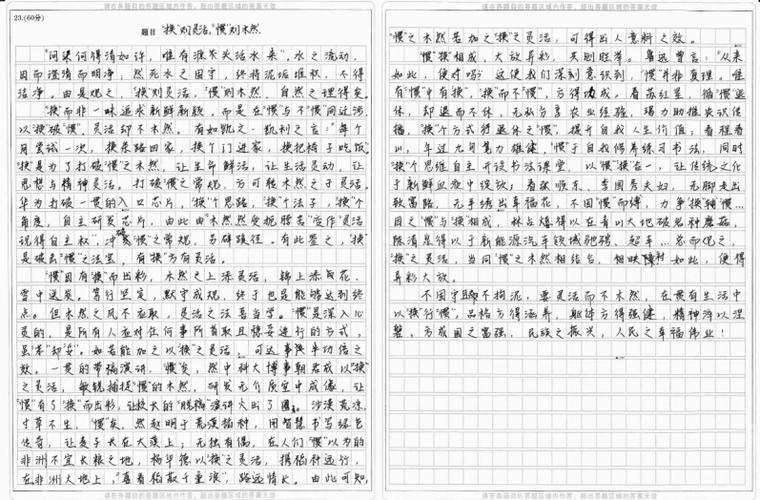 请在各题目的答题区域内作答，超出答题区域的答案无效
23.(60分)
题目 "换"则灵活,"惯"则木然
"问渠何得清如许，唯有源头活水来"，水之流动，
因而澄清而明净；然死水之固守，终将泥垢堆积，不得
洁净。由是观之，"换"则灵活，"惯"则木然，自然之理得矣。
"换"而非一味追求新鲜新颖，而是在"惯"与"不惯"间迂游，
以"换"破"惯"，灵活却不木然。有如凯文·凯利之言："每个
月尝试一次，换条路回家，换个门进家，换把椅子吃饭"。
"换"是为了打破"惯"之木然，让生命鲜活，让生活灵动，让
思想与精神灵活。打破"惯"之常规，方可脱木然之于灵活。
华为打破一惯的入口芯片，"换"个思路，"换"个法子，"换"个
角度，自主研发芯片，由此由"木然然受扼脖苦"变作"灵活
现得自主权"，冲破"惯"之常规，另辟蹊径。有此鉴之，"换"
是破出"惯"之法宝，有"换"方有灵活。
"惯"因有"换"而出彩，木然之上添灵活，锦上添花、
雪中送炭。笃行坚定，默守成规，终于也是能够达到终
点。但木然之风不应取，灵活之法是当学。"惯"是深入人心
灵的，是所有人应对任何事所首取且稳妥进行的方式，
虽"笨"却"妥"。如若能加之以"换"之灵活，可达事半功倍之
效。一贯的带稿演讲，"惯"矣，然中科大博事朝君成以"换"
之灵活，敏锐捕捉"惯"的木然，研发无介质空中成像，让
"惯"有了"换"而出彩，让校长的"脱稿"演讲火出了圈。沙漠荒凉，
寸草不生，"惯"矣，然赵明于荒漠插种，用智慧书写绿色
传奇，让麦子长在大漠上；无独有偶，在人们"惯"以为的
非洲不宜长粮之地，杨华德以"换"之灵活，携稻种远行，
在非洲大地上，"喜看稻菽千重浪"，路远情长。由此可知，
请在各题目的答题区域内作答，超出答题区域的答案无效
请在各题目的答题区域内作答，超出答题区域的答案无效
"惯"之木然若加之"换"之灵活，可得出人意料之效。
"惯""换"相成，大放异彩，共则胜举。鲁迅曾言："从来
如此，便对吗？"这使我们深刻意识到，"惯"并非真理。唯
有"惯"中有"换"，"换"而不"惯"，方得功成。看苏红星，循"惯"退
休，却退而不休，无私分享农业经验，竭力助推共识传
播，"换"个方式行退休之"惯"，提升自我人生价值；看程看
山，年过九旬笔力雄健，"惯"于自我修养练习书法，同时
"换"个思维自主开设书法课堂，以"惯""换"合一，让传统文化
于新鲜血液中绽放；看赵顺东、李国秀夫妇，无脚走出
致富路，无手绣出幸福花，不因"惯"而缚，力争"换"辅"惯"…
因之"惯"与"换"相成，林占熺得以在青山大地破岩种蘑菇，
陈清泉得以于新能源汽车领域驰骋、超车…总而观之，
"换"之灵活，当同"惯"之木然相结合，相映衬，如此，便得
异彩大放。
不固守且不拘泥，要灵活而不木然，在惯有生活中
以"换"行"惯"，品格方得涵养，躯体方得强健，精神得以涅
槃，方成国之富强，民族之振兴，人民之幸福伟业！
请在各题目的答题区域内作答，超出答题区域的答案无效